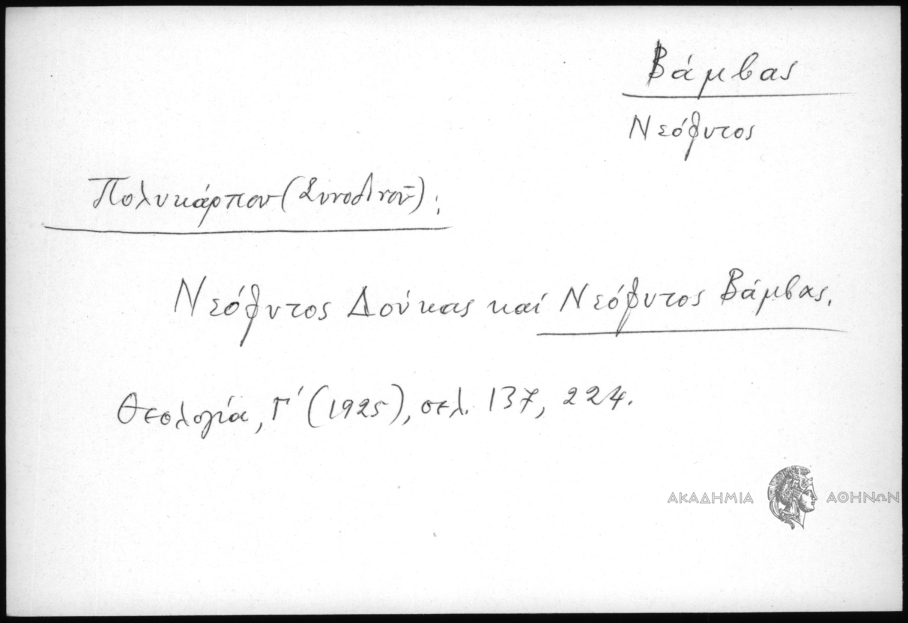 Βάμβας
Νεόφυτος
Πολυκάρπου (Συνοδινοῦ):
Νεόφυτος Δούκας καί Νεόφυτος Βάμβας.
Θεολογία, Γ' (1925), σελ. 137, 224.
ΑΚΑΔΗΜΙΑ ΑΘΗΝΩΝ